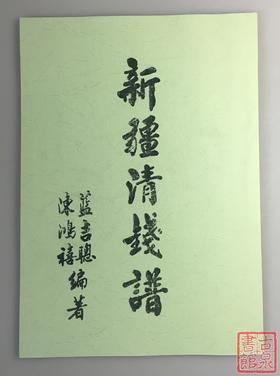 新疆清錢譜
藍吉聰
陳鴻禧
編著
古泉
書館